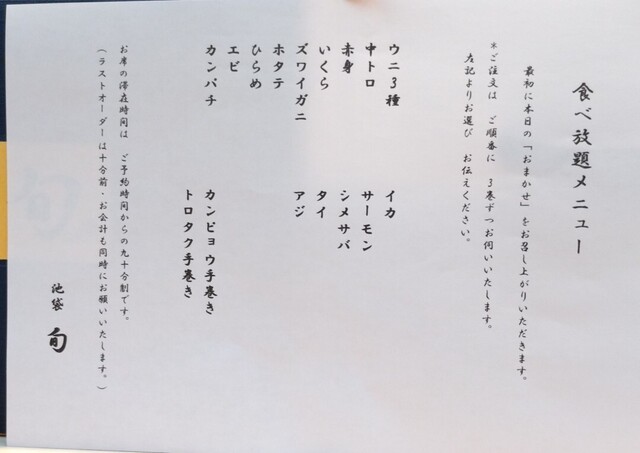 食べ放題メニュー
最初に本日の「おまかせ」をお召し上がりいただきます。
*ご注文は ご順番に 3巻ずつお伺いいたします。
左記よりお選び お伝えください。
ウニ3種
中トロ
赤身
いくら
ズワイガニ
ホタテ
ひらめ
エビ
カンパチ
イカ
サーモン
シメサバ
タイ
アジ
カンピョウ手巻き
トロタク手巻き
お席の滞在時間は ご予約時間からの九十分制です。
(ラストオーダーは十分前・お会計も同時にお願いいたします。)
池袋 旬